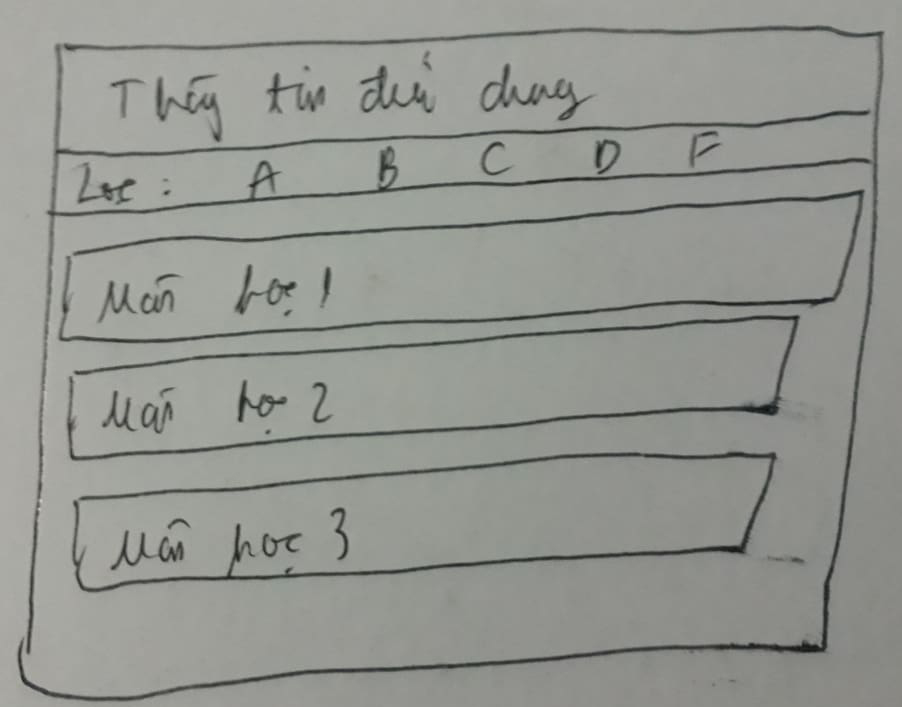 Thông tin điểm chung
Lọc: A B C D F
Môn học 1
Môn học 2
Môn học 3